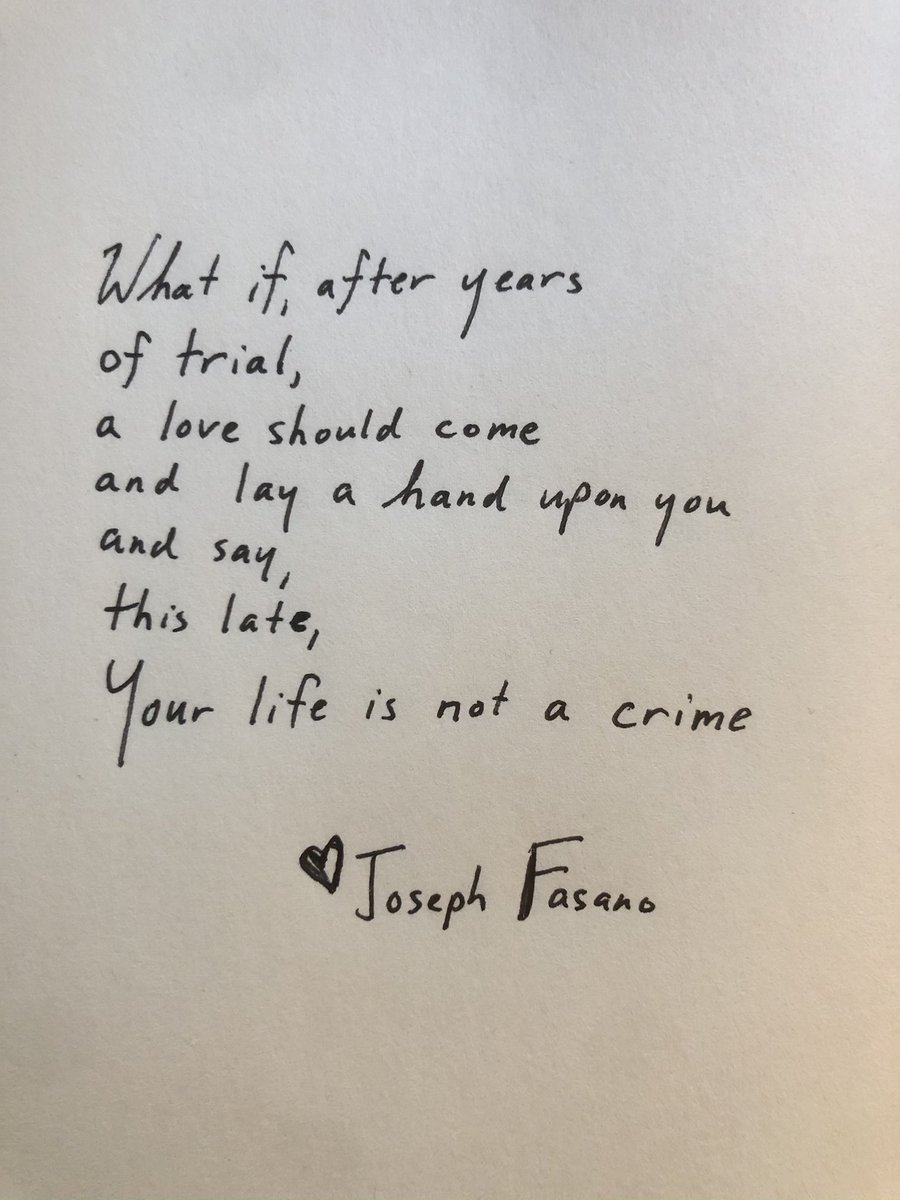 What if, after years
of trial,
a love should come
and lay a hand upon you
and say,
this late,
Your life is not a crime
♥ Joseph Fasano